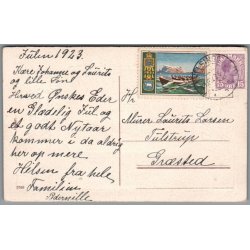 Julen 1923.
Kære Johanne og Laurits
og lille Søn
Hvad Ønskes Eder
en Glædelig Jul og
et godt Nytaar
kommer i da aldrig
her op mere
Hilsen fra hele
Familien
Murer Laurits Larsen
Tulstrup
Græsted
15 15